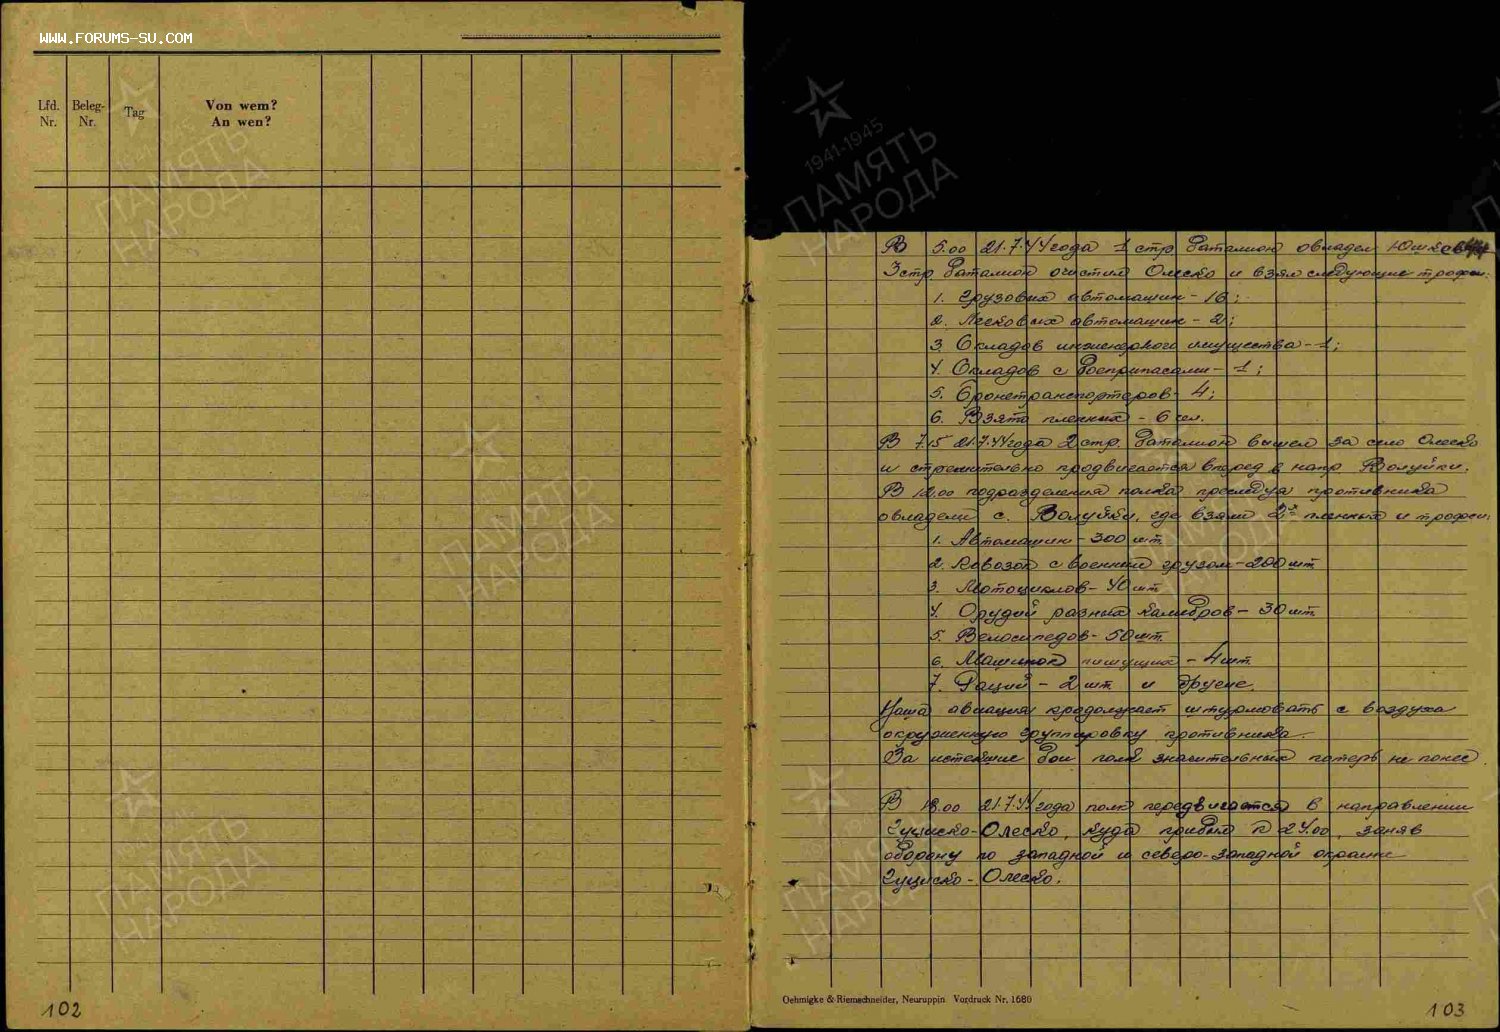 WWW.FORUMS-SU.COM
Lfd. Nr.
Beleg-Nr.
Tag
Von wem?
An wen?
1941-1945
ПАМЯТЬ
НАРОДА
102
В 5.00 21.7.44 года 1 стр. батальон овладел
3 стр. батальон очистил Олеско и взял следующие трофеи:
1. Грузовых автомашин - 16;
2. Легковых автомашин - 2;
3. Складов инженерного имущества - 1;
4. Складов с боеприпасами - 1;
5. Бронетранспортеров - 4;
6. Взято пленных - 6 чел.
В 7.15 21.7.44 года 2 стр. батальон вышел за село Олеско
и стремительно продвигается вперед в напр. Волуйки.
В 12.00 подразделения полка преследуя противника
овладели с. Волуйки, где взяли 2х пленных и трофеи:
1. Автомашин - 300 шт.
2. Повозок с военным грузом - 200 шт.
3. Мотоциклов - 40 шт.
4. Орудий разных калибров - 30 шт.
5. Велосипедов - 50 шт.
6. Машинок пишущих - 4 шт.
7. Раций - 2 шт. и другие.
Наша авиация продолжает штурмовать с воздуха
окруженную группировку противника.
За истекшие бои полк значительных потерь не понес.
В 18.00 21.7.44 года полк передвигается в направлении
Гуциско-Олеско, куда прибыл к 24.00, заняв
оборону по западной и северо-западной окраине
Гуциско-Олеско.
Oehmigke & Riemschneider, Neuruppin Vordruck Nr. 1680
103